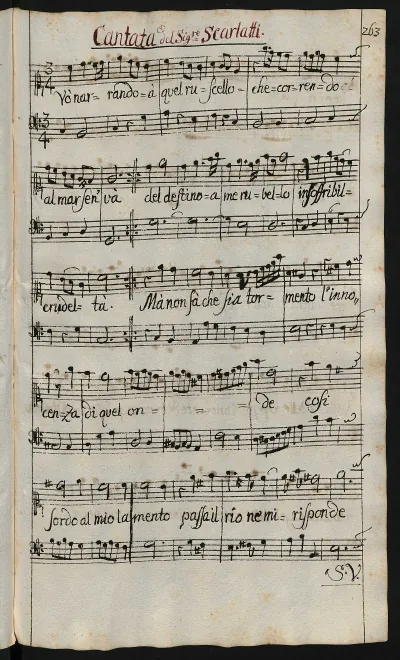 Cantata del Sigre Scarlatti.
263
3 4 Vò nar= rando= à quel ru= scello= che= cor= ren= do
3 4
al mar sen và del destino= a me ru= bel= lo insoffribil=
crudel= tà. Mà non sà che sia tor= mento l'inno,,
cenza di quel on= = = de cosi
sordo al mio lamento passa il rio ne mi= risponde
S. V.